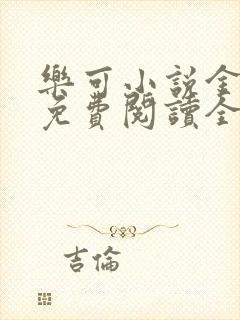 樂可小說全
免費閱讀全
吉倫